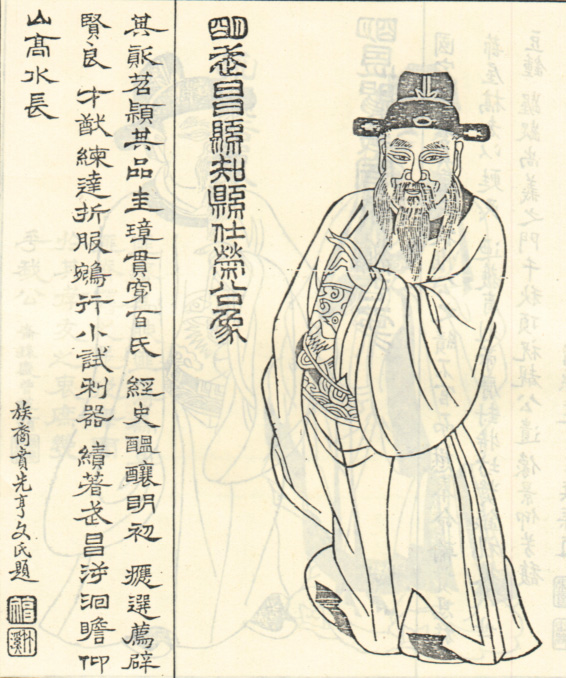 明武昌縣知縣仕榮公象
其茗穎其品圭璋貫穿百氏 經史醞釀明初 應選薦辟
賢良 才猷練達折服行小試利器 績著武昌泝洄瞻仰
山髙水長
族裔賁先亨文氏題